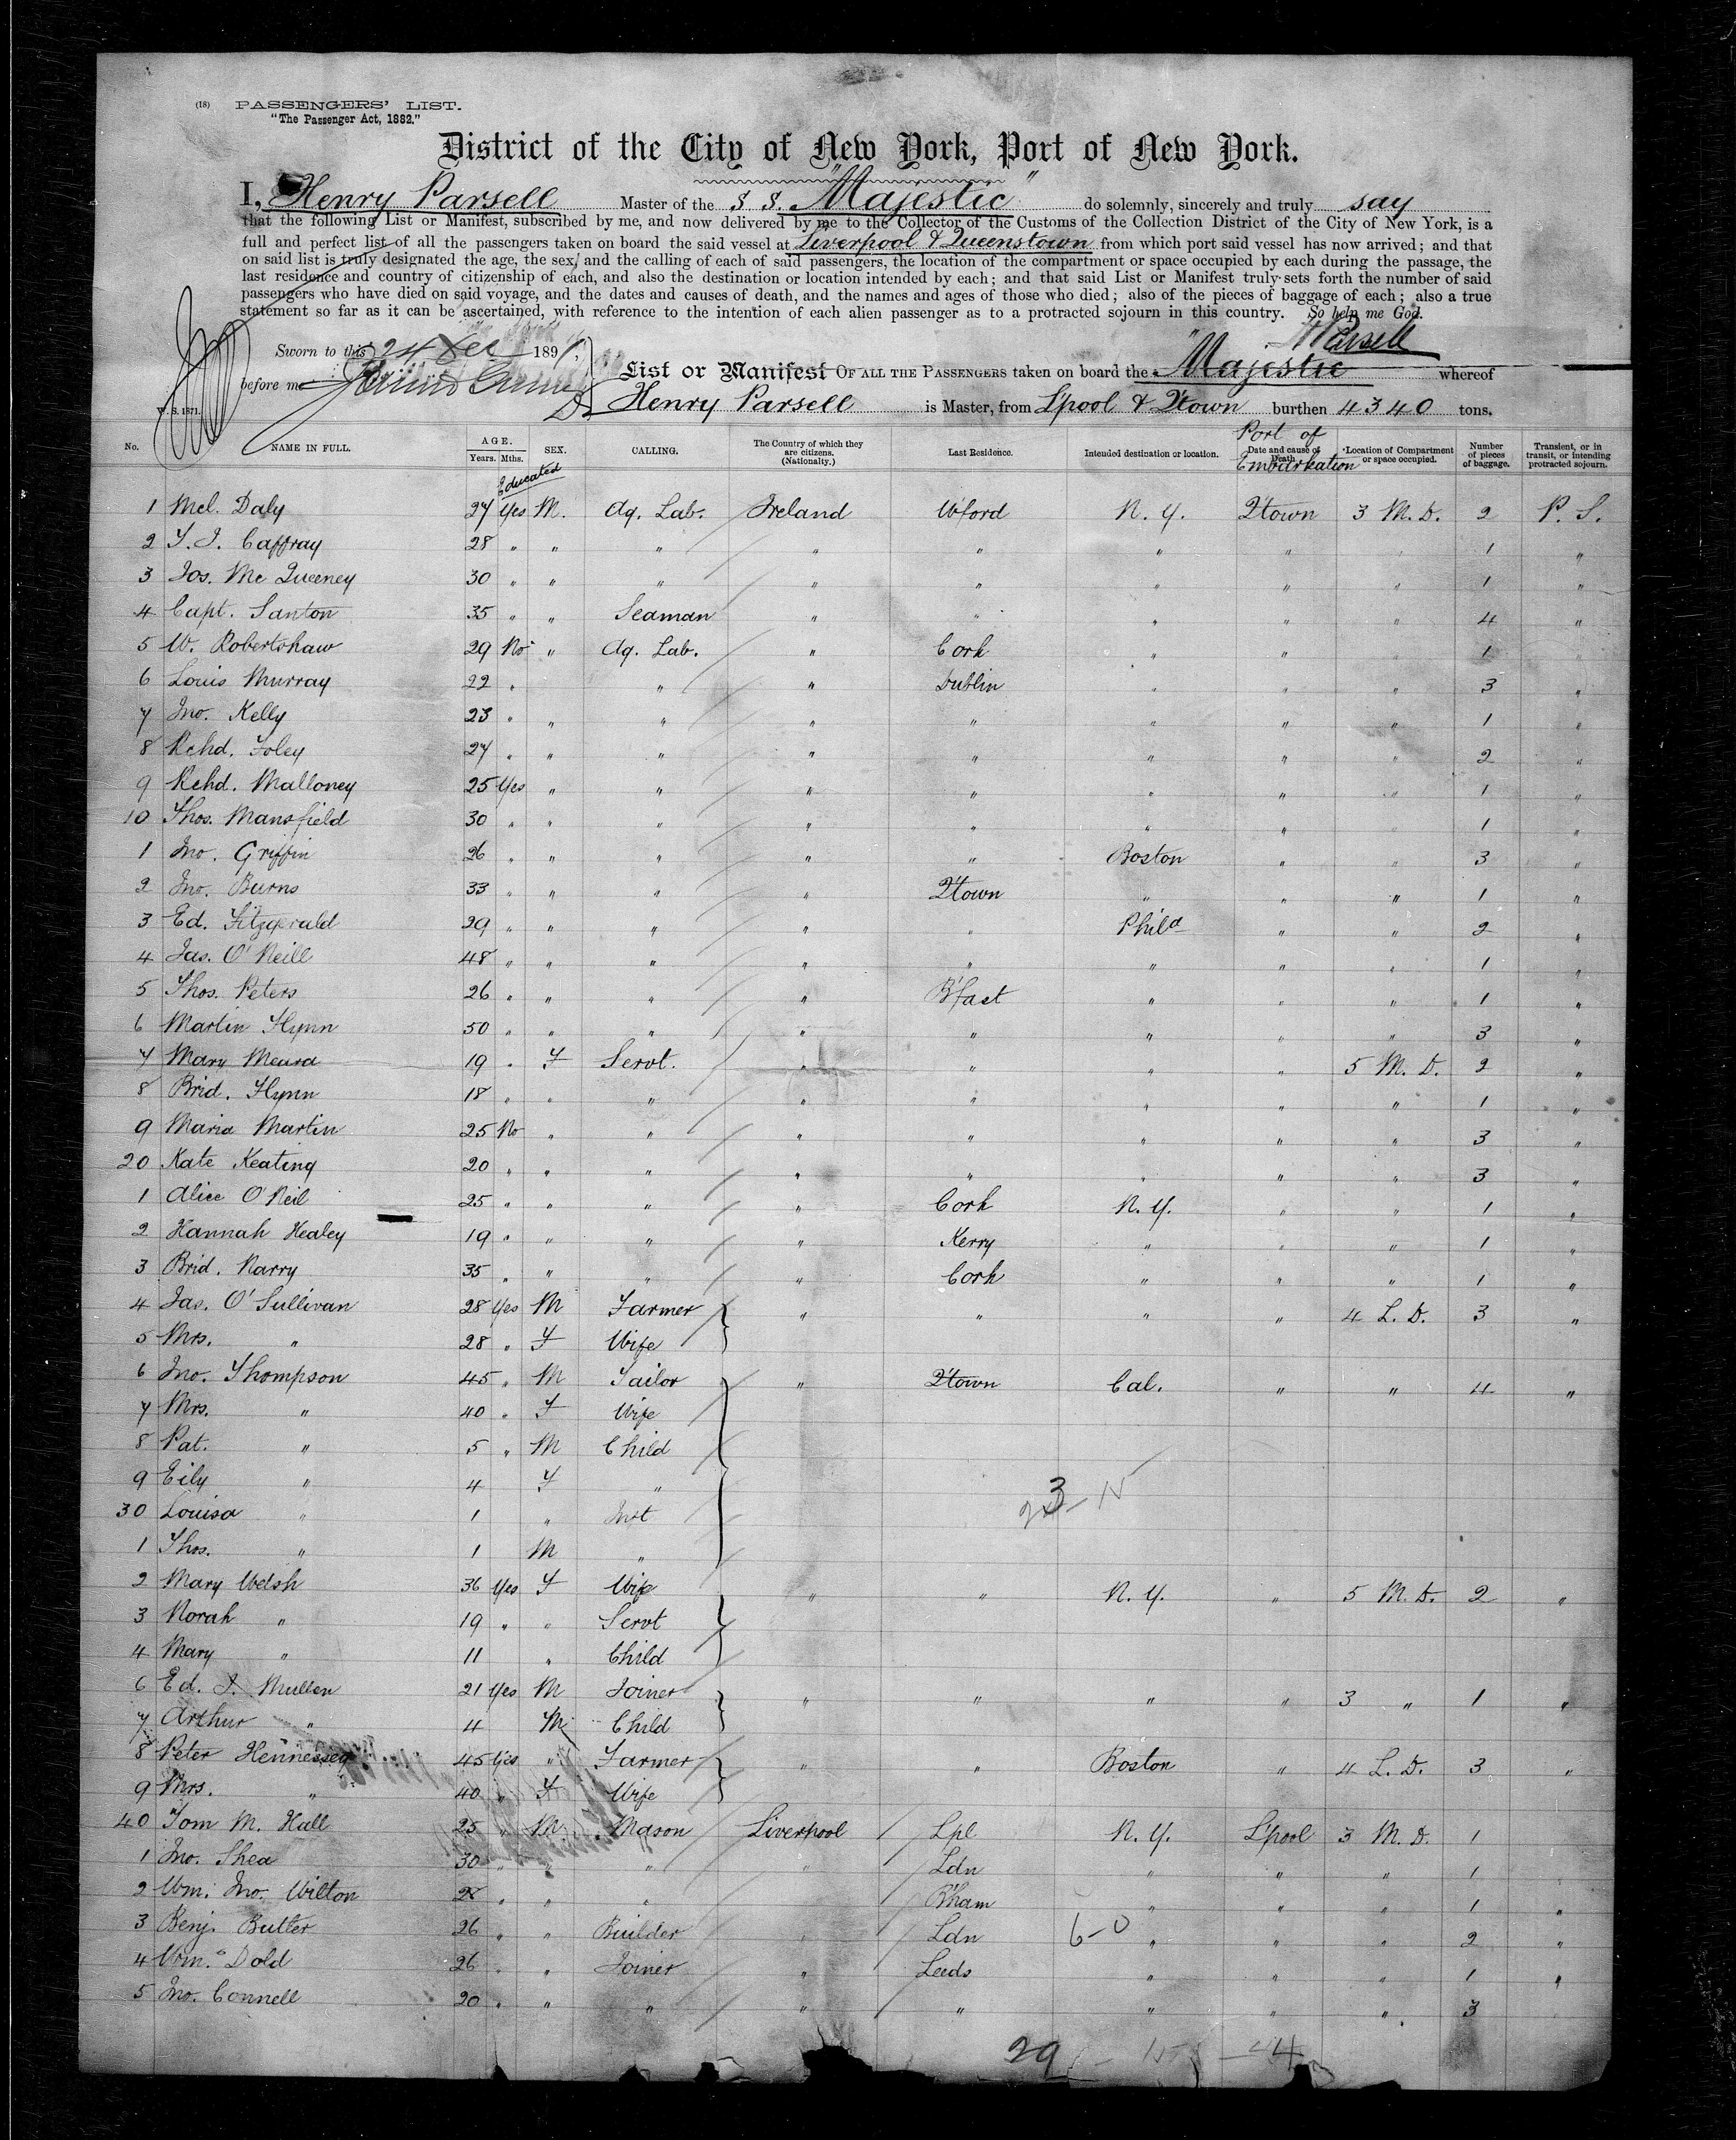 (18) PASSENGERS' LIST.
"The Passenger Act, 1882."
District of the City of New York, Port of New York.
I, Henry Parsell Master of the S S. "Majestic" do solemnly, sincerely and truly say
that the following List or Manifest, subscribed by me, and now delivered by me to the Collector of the Customs of the Collection District of the City of New York, is a
full and perfect list of all the passengers taken on board the said vessel at Liverpool & Queenstown from which port said vessel has now arrived; and that
on said list is truly designated the age, the sex, and the calling of each of said passengers, the location of the compartment or space occupied by each during the passage, the
last residence and country of citizenship of each, and also the destination or location intended by each; and that said List or Manifest truly sets forth the number of said
passengers who have died on said voyage, and the dates and causes of death, and the names and ages of those who died; also of the pieces of baggage of each; also a true
statement so far as it can be ascertained, with reference to the intention of each alien passenger as to a protracted sojourn in this country. So help me God.
H Parsell
Sworn to this 24 Dec 1891,
before me
List or Manifest OF ALL THE PASSENGERS taken on board the "Majestic whereof
W. S. 1871.
Henry Parsell is Master, from L'pool & Q'town burthen 4340 tons.
No. NAME IN FULL. AGE. Years. Mths. SEX. CALLING. The Country of which they are citizens. (Nationality.) Last Residence. Intended destination or location. Date and cause of Death. Port of Embarkation Location of Compartment or space occupied. Number of pieces of baggage. Transient, or in transit, or intending protracted sojourn.
Educated
1 Mcl. Daly 27 Yes M. Ag. Lab. Ireland W'ford N. Y. Q'town 3 M. D. 2 P. S.
2 T. J. Caffray 28 " " " " " " " " 1 "
3 Jos. Mc Queeney 30 " " " " " " " " 1 "
4 Capt. Santon 35 " " Seaman " " " " " 4 "
5 W. Robertshaw 29 No " Ag. Lab. " Cork " " " 1 "
6 Louis Murray 22 " " " Dublin " " " 3 "
7 Jno. Kelly 23 " " " " " " " " 1 "
8 Rchd. Foley 27 " " " " " " " " 2 "
9 Rchd. Malloney 25 Yes " " " " " " " 1 "
10 Thos. Mansfield 30 " " " " " " " " 1 "
1 Jno. Griffin 26 " " " " " Boston " " 3 "
2 Jno. Burns 33 " " " " Q'town " " " 1 "
3 Ed. Fitzgerald 29 " " " " " Phila " " 2 "
4 Jas. O'Neill 48 " " " " " " " " 1 "
5 Thos. Peters 26 " " " " B'fast " " " 1 "
6 Martin Flynn 50 " " " " " " " " 3 "
7 Mary Meara 19 " F Servt. " " " " 5 M. D. 2 "
8 Brid. Flynn 18 " " " " " " " " 1 "
9 Maria Martin 25 No " " " " " " " 3 "
20 Kate Keating 20 " " " " " " " " 3 "
1 Alice O'Neil 25 " " " " Cork N. Y. " " 1 "
2 Hannah Healey 19 " " " " Kerry " " " 1 "
3 Brid. Narry 35 " " " " Cork " " " 1 "
4 Jas. O'Sullivan 28 Yes M Farmer " " " " 4 L. D. 3 "
5 Mrs. " 28 " F Wife
6 Jno. Thompson 45 " M Tailor " Q'town Cal. " " 4 "
7 Mrs. " 40 " F Wife
8 Pat. " 5 " M Child
9 Eily " 4 F "
30 Louisa " 1 " Inft
1 Thos. " 1 M "
2 Mary Welsh 36 Yes F Wife " " N. Y. " 5 M. D. 2 "
3 Norah " 19 " " Servt
4 Mary " 11 " Child
6 Ed. J. Mullen 21 Yes M Joiner " " " " 3 " 1 "
7 Arthur " 4 M Child
8 Peter Hennessey 45 Yes " Farmer " " Boston " 4 L. D. 3 "
9 Mrs. " 40 " F Wife
40 Tom M. Hall 25 " M. Mason Liverpool Lpl N. Y. L'pool 3 M. D. 1
1 Jno. Shea 30 " " " " Ldn " " " 1
2 Wm. Jno. Wilton 28 " " " B'ham " " " 1 "
3 Benj. Butler 26 " " Builder " Ldn 6-0 " " " 2 "
4 Wm. Dold 26 " " Joiner " Leeds " " " 1 "
5 Jno. Connell 20 " " " " " " " " 3 "
29